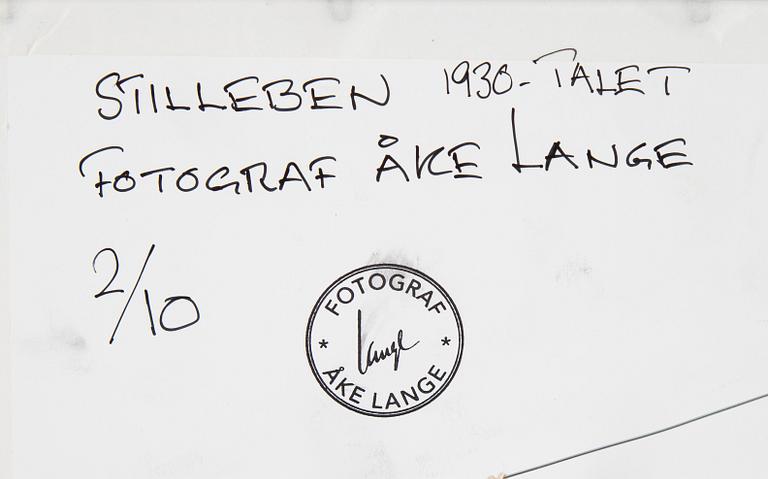 STILLEBEN 1930-TALET
FOTOGRAF ÅKE LANGE
2/10
FOTOGRAF
Lange
* *
ÅKE LANGE